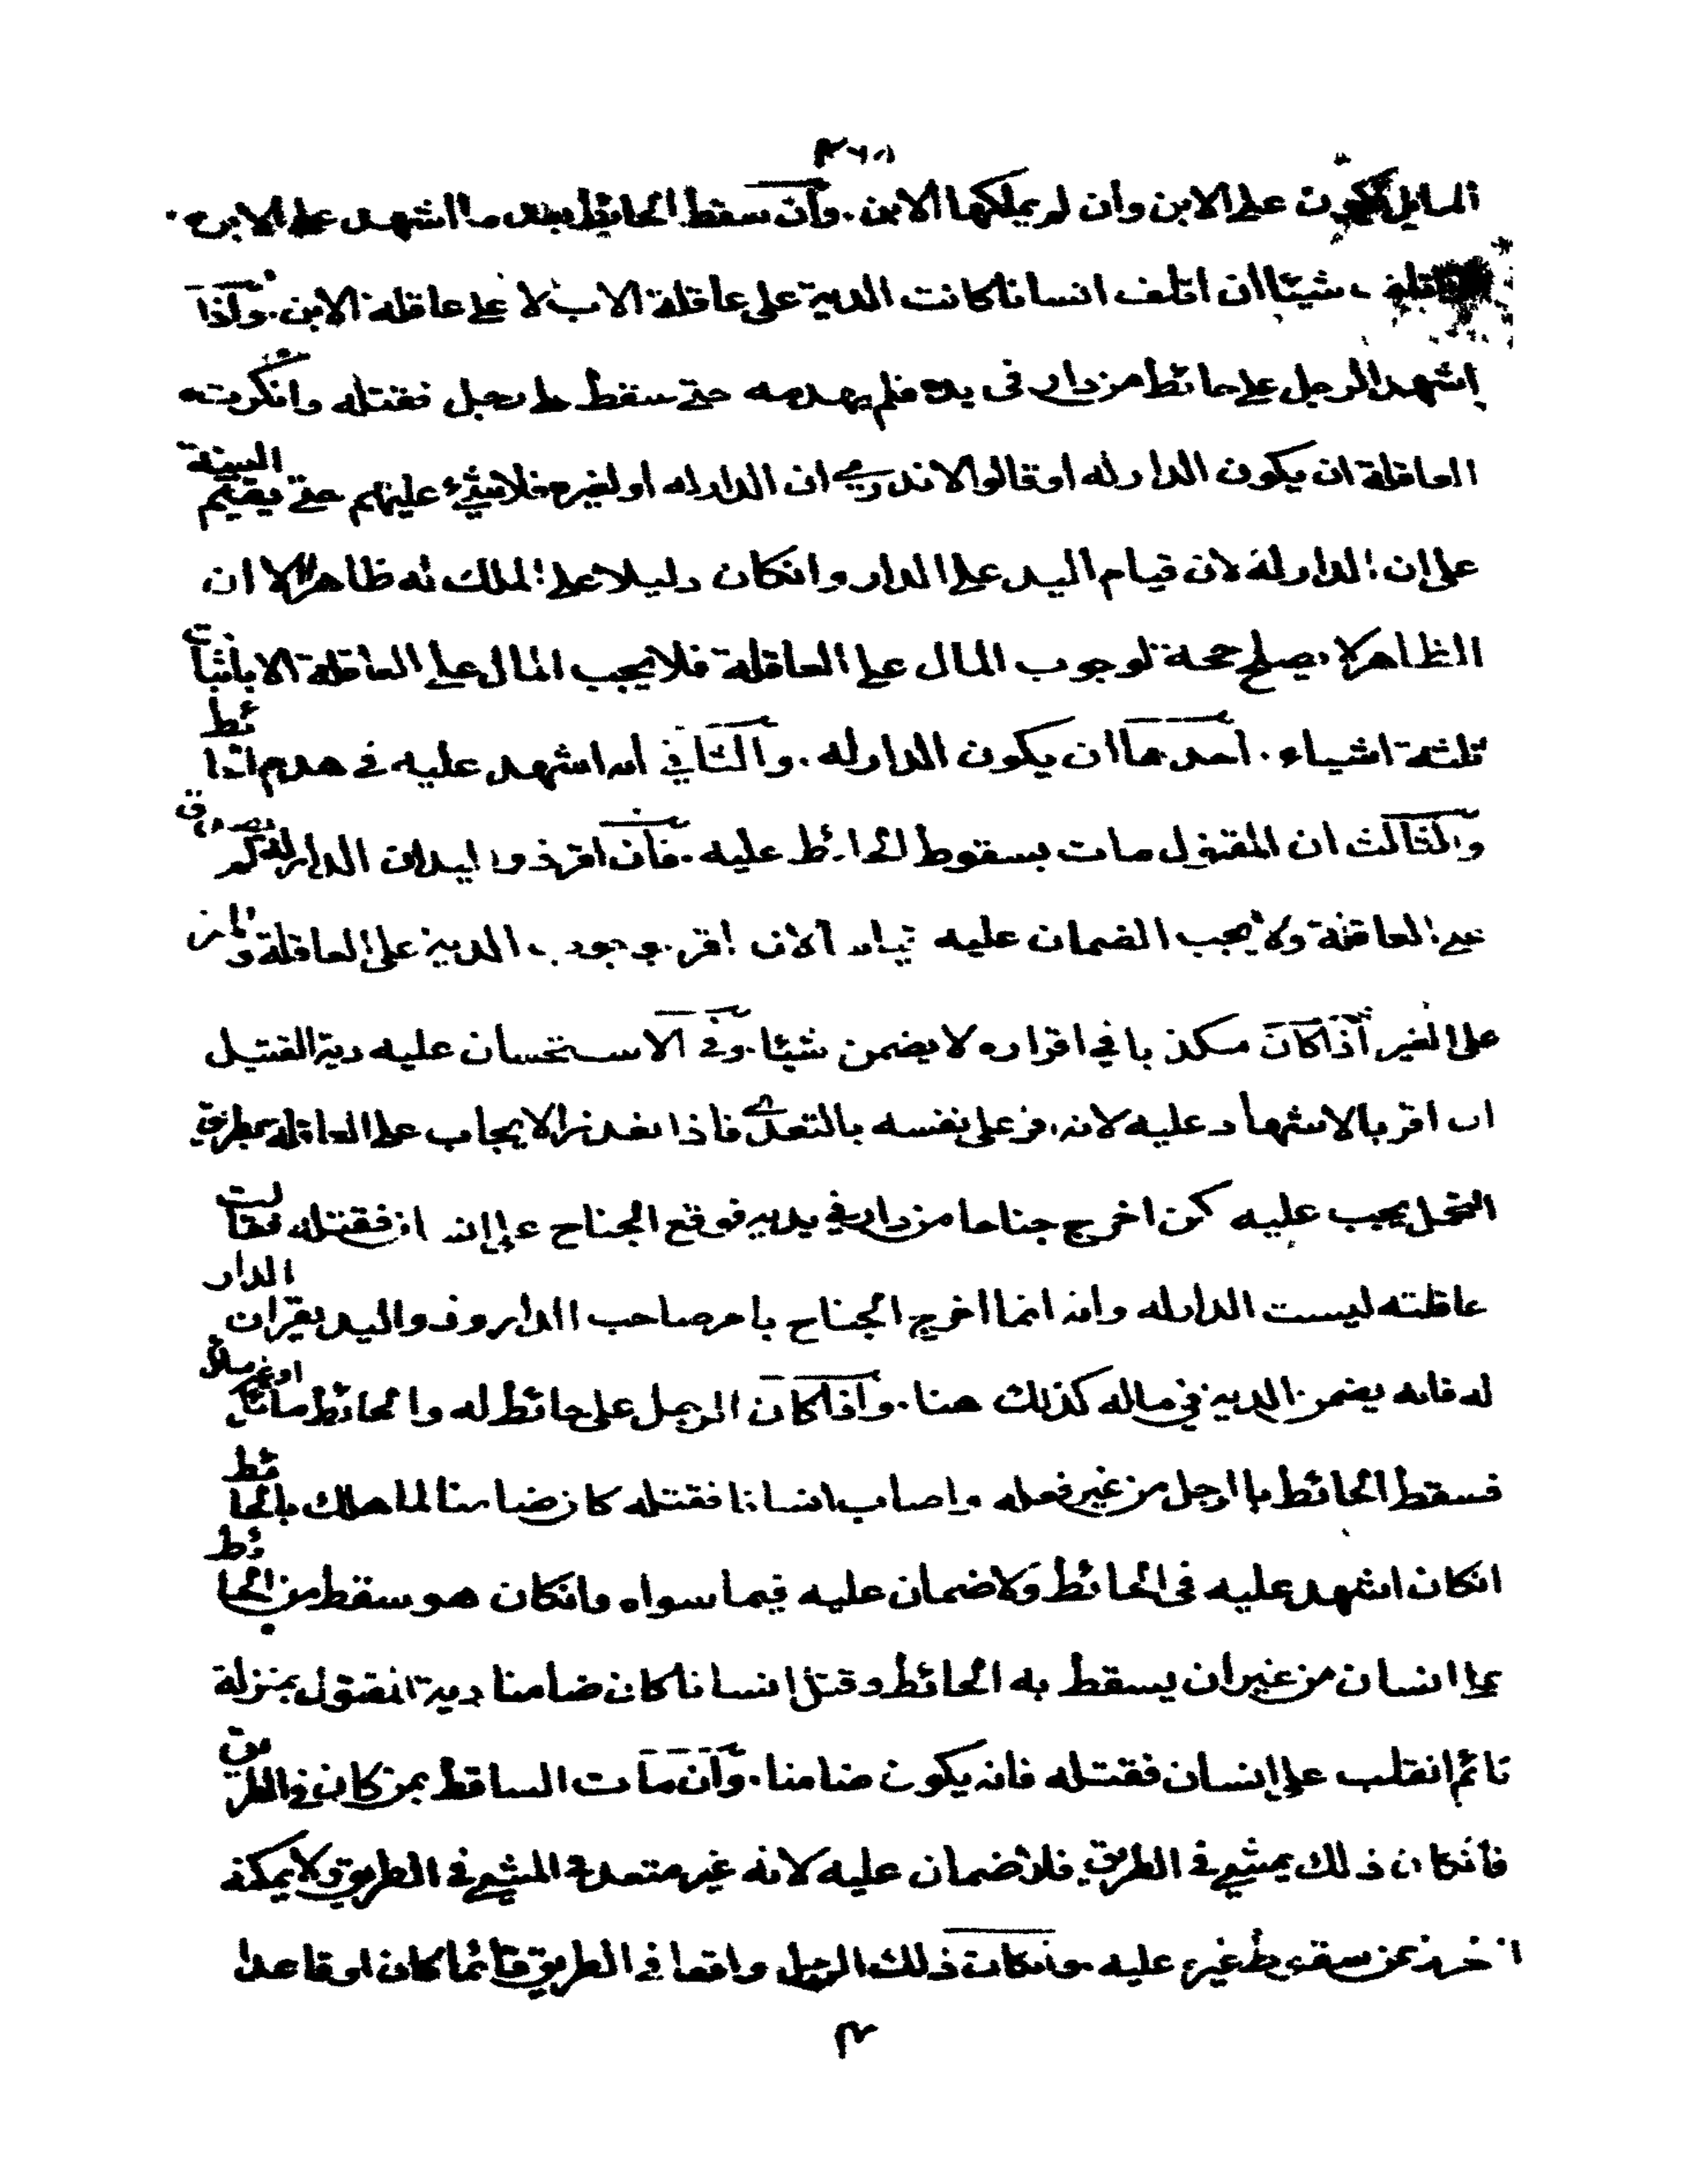 المايل يكون على الابن وان لم يملكها الابن. وان سقط الحائط بعد ما اشهد على الابن
فاتلف شيئا ان اتلف انسانا كانت الدية على عاقلة الاب لا على عاقلة الابن. واذا
اشهد الرجل على حائط من دار فى يده فلم يهدمه حتى سقط على رجل فقتله وانكرت
العاقلة ان يكون الدار له او قالوا لا ندرى ان الدار له او لغيره فلا شىء عليهم حتى يقيم البينة
على ان الدار له لان قيام اليد على الدار وانكان دليلا على الملك له ظاهرا الا ان
الظاهر لا يصلح حجة لوجوب المال على العاقلة فلا يجب المال على العاقلة الا باثبات
ثلثة اشياء. احدها ان يكون الدار له. والثاني انه اشهد عليه فى هدم الحائط
والثالث ان المقتول مات بسقوط الحائط عليه. فان اقر ذو اليد ان الدار له لم يصدق
على العاقلة ولا يجب الضمان عليه قياسا لانه اقر بوجوب الدية على العاقلة والمقر
على الغير اذا كان مكذبا في اقراره لا يضمن شيئا. وفى الاستحسان عليه دية القتيل
ان اقر بالاشهاد عليه لانه اقر على نفسه بالتعدى فاذا تعذر الايجاب على العاقلة بطريق
التحمل يجب عليه كمن اخرج جناحا من دار في يديه فوقع الجناح على انسان فقتله فقالت
عاقلته ليست الدار له وانه انما اخرج الجناح بامر صاحب الدار وذو اليد يقر ان الدار
له فانه يضمن الدية في ماله كذلك هنا. واذا كان الرجل على حائط له والحائط مائل او غير مائل
فسقط الحائط بالرجل من غير فعله واصاب انسانا فقتله كان ضامنا لما هلك بالحائط
انكان اشهد عليه فى الحائط ولا ضمان عليه فيما سواه وانكان هو سقط من الحائط
على انسان من غير ان يسقط به الحائط وقتل انسانا كان ضامنا دية المقتول بمنزلة
نائم انقلب على انسان فقتله فانه يكون ضامنا. وان مات الساقط بمن كان فى الطريق
فانكان ذلك يمشي فى الطريق فلا ضمان عليه لانه غير متعد فى المشي فى الطريق ولا يمكنه
التحرز عن سقوط غيره عليه. وانكان ذلك الرجل واقفا في الطريق قائما كان او قاعدا